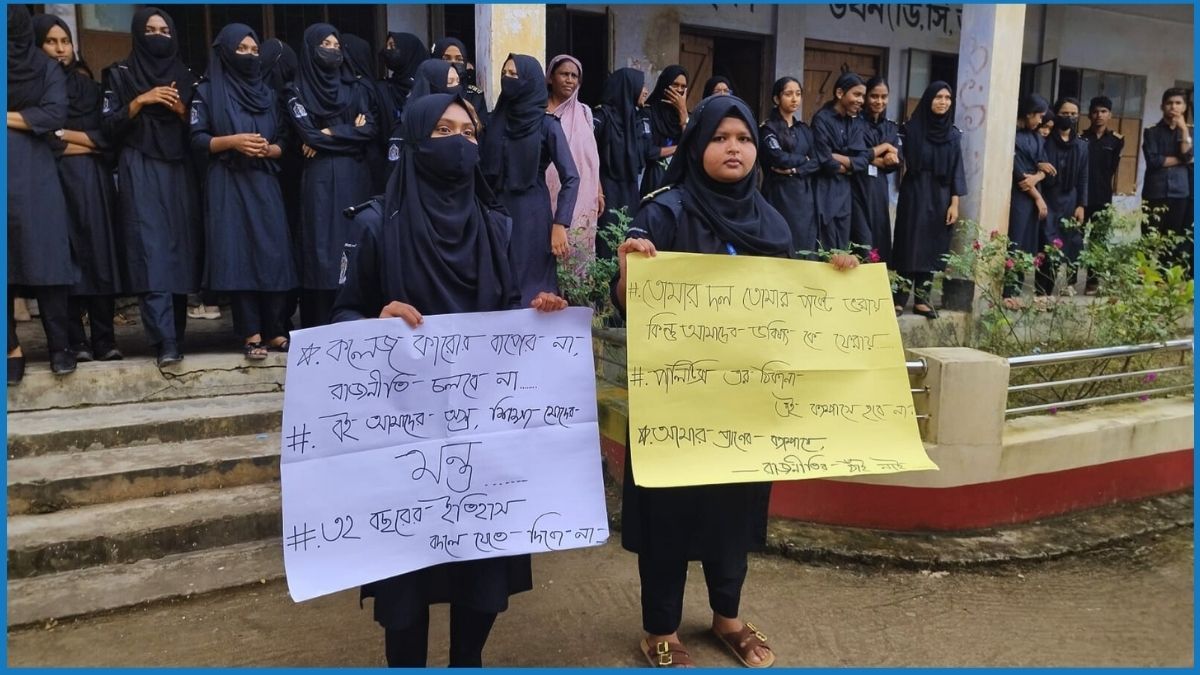 ভবন(ডি.সি.
#. কলেজ কারোর বাপের না,
রাজনীতি চলবে না......
#. বই আমাদের অস্ত্র, শিক্ষা মোদের
মন্ত্র......
#. ৩২ বছরের ইতিহাস
বদলে যেতে দিবো না
#. তোমার দল তোমার পকেট ভরায়
কিন্তু আমাদের ভবিষ্যৎ কে পোড়ায়....
#. পলিটিক্স এর ঠিকানা
এই ক্যাম্পাসে হবে না
#. আমার প্রাণের ক্যাম্পাসে,
রাজনীতির ঠাঁই নাই